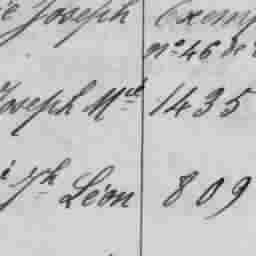 Joseph Exemp
n° 46 de
Joseph Mie 1435
Jh Léon 809